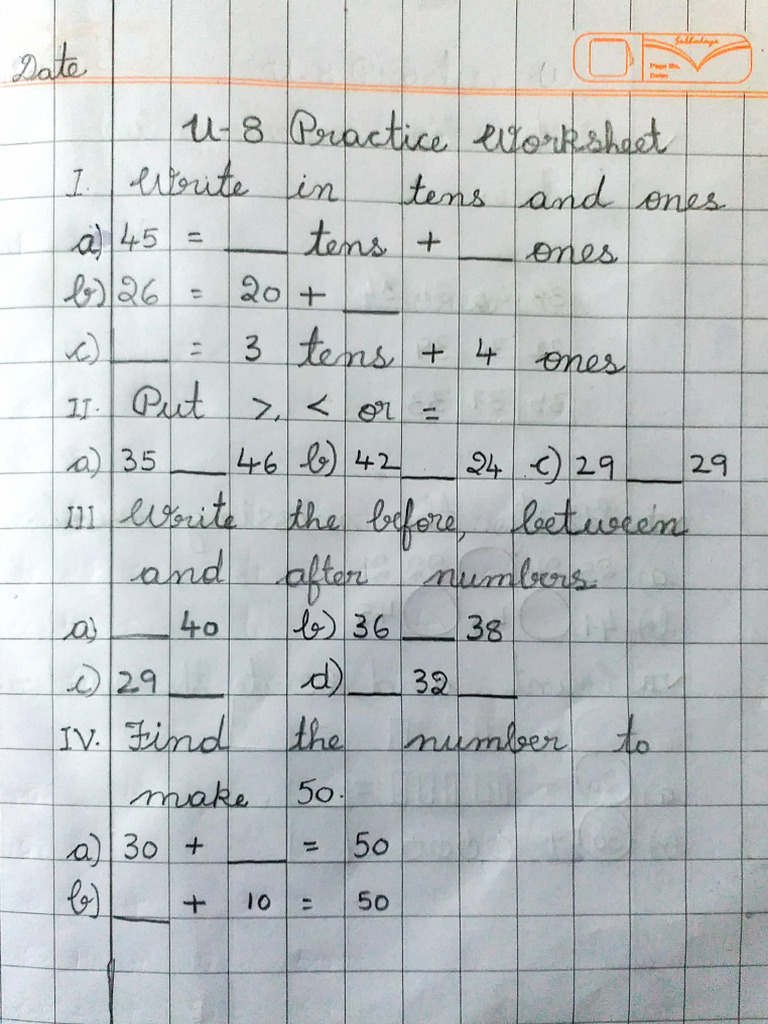 Date
Sabhadaya
Page No.
Date:
U-8 Practice Worksheet
I. Write in tens and ones
a) 45 = ___ tens + ___ ones
b) 26 = 20 + ___
c) ___ = 3 tens + 4 ones
II. Put >, < or =
a) 35 ___ 46 b) 42 ___ 24 c) 29 ___ 29
III Write the before, between
and after numbers.
a) ___ 40 b) 36 ___ 38
c) 29 ___ d) ___ 32 ___
IV. Find the number to
make 50.
a) 30 + ___ = 50
b) ___ + 10 = 50